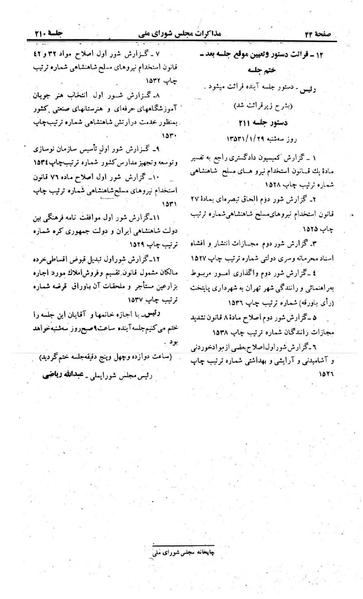 صفحهٔ ۲۲
مذاکرات مجلس شورای ملی
جلسهٔ ۲۱۰
۱۲ - قرائت دستور و تعیین موقع جلسه بعد -
ختم جلسه
رئیس ـ دستور جلسه آینده قرائت میشود .
(بشرح زیر قرائت شد)
دستور جلسه ۲۱۱
روز سه‌شنبه ۱۳۵۳/۱/۲۹
۱ ـ گزارش کمیسیون دادگستری راجع به تفسیر
مادهٔ یك قانون استخدام نیرو های مسلح شاهنشاهی
شماره ترتیب چاپ ۱۵۲۸
۲ـ گزارش شور دوم الحاق تبصره‌ای بمادهٔ ۲۷
قانون استخدام نیروهای‌مسلح شاهنشاهی شماره ترتیب
چاپ ۱۵۲۵
۳ـ گزارش شور دوم مجازات انتشار و افشاء
اسناد محرمانه وسری دولتی شماره ترتیب چاپ ۱۵۲۷
۴ـ گزارش شور دوم واگذاری امور مربوط
به‌راهنمائی و رانندگی شهر تهران به شهرداری پایتخت
(رأی باورقه) شماره ترتیب چاپ ۱۵۳۶
۵ـ گزارش شور دوم اصلاح مادهٔ ۸ قانون تشدید
مجازات رانندگان شماره ترتیب چاپ ۱۵۳۸
۶ـ گزارش شور اول اصلاح بعضی از مواد خوردنی
و آشامیدنی و آرایشی و بهداشتی شماره ترتیب چاپ
۱۵۲۶
۷ ـ گزارش شور اول اصلاح مواد ۳۲ و ۴۲
قانون استخدام نیروهای مسلح شاهنشاهی شماره ترتیب
چاپ ۱۵۳۲
۸ـ گزارش شور اول انتخاب هنر جویان
آموزشگاههای حرفه‌ای و هنرستانهای صنعتی کشور
بمنظور خدمت درارتش شاهنشاهی شماره ترتیب چاپ
۱۵۳۰
۹ـ گزارش شور اول تأسیس سازمان نوسازی
و توسعه وتجهیز مدارس کشور شماره ترتیب‌چاپ ۱۵۳۴
۱۰ـ گزارش شور اول اصلاح ماده ۷۹ قانون
استخدام نیروهای مسلح شاهنشاهی شماره ترتیب چاپ
۱۵۳۱
۱۱ـ گزارش شور اول موافقت نامه فرهنگی بین
دولت شاهنشاهی ایران و دولت جمهوری کره شماره
ترتیب چاپ ۱۵۲۹
۱۲ـ گزارش شور اول تبدیل قبوض اقساطی‌خرده
مالکان مشمول قانون تقسیم وفروش‌املاك مورد اجاره
بزارعین مستأجر و ملحقات آن باوراق قرضه شماره
ترتیب چاپ ۱۵۳۷
رئیس ـ با اجازه خانمها و آقایان این جلسه را
ختم می‌کنیم جلسه‌آینده ساعت ۹ صبح روز سه‌شنبه‌خواهد
بود .
(ساعت دوازده وچهل وپنج دقیقه جلسه ختم گردید)
رئیس مجلس شورایملی ـ عبدالله ریاضی
چاپخانه مجلس شورای ملی